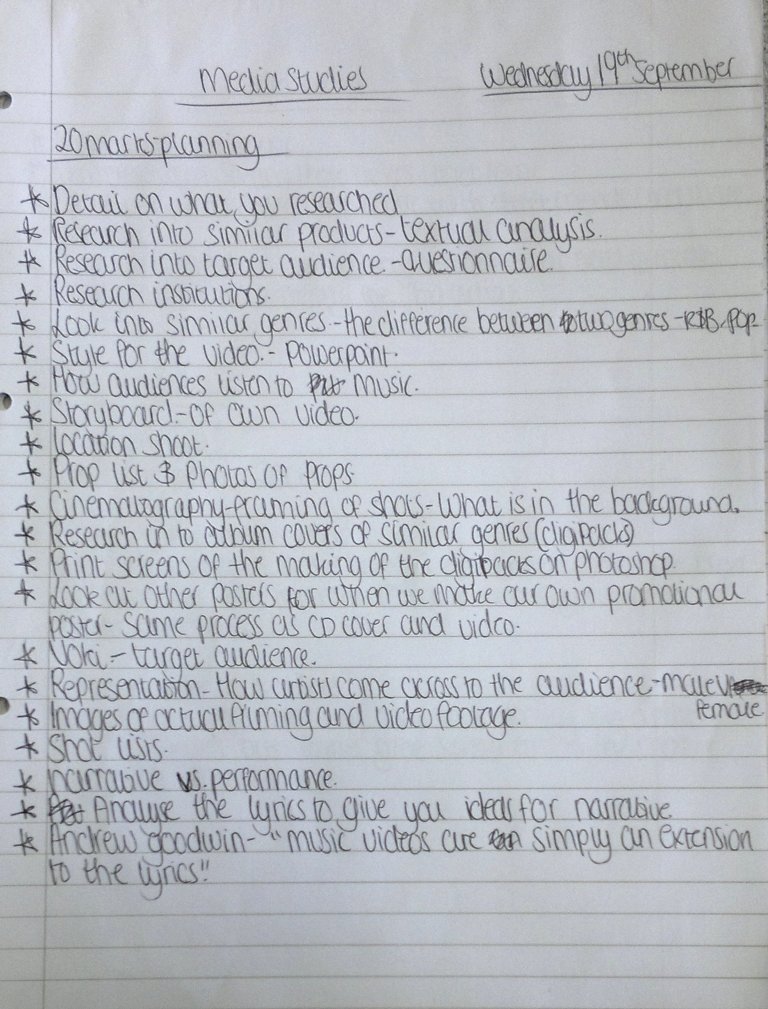 Media Studies Wednesday 19th September
20 marks-planning
* Detail on what you researched
* Research into similar products - textual analysis.
* Research into target audience - questionnaire.
* Research institutions.
* Look into similar genres - the difference between two genres - R&B, Pop
* Style for the video - Powerpoint.
* How audiences listen to music.
* Storyboard - of own video.
* Location shoot.
* Prop list & Photos of props
* Cinematography-framing of shots - What is in the background.
* Research in to album covers of similar genres (digipacks)
* Print screens of the making of the digipacks on photoshop.
* Look at other posters for when we make our own promotional
poster - same process as CD cover and video.
* Voki - target audience.
* Representation - How artists come across to the audience - male v
female.
* Images of actual filming and video footage.
* Shot lists.
* narrative vs. performance.
* Analyse the lyrics to give you ideas for narrative.
* Andrew Goodwin - "music videos are simply an extension
to the lyrics"